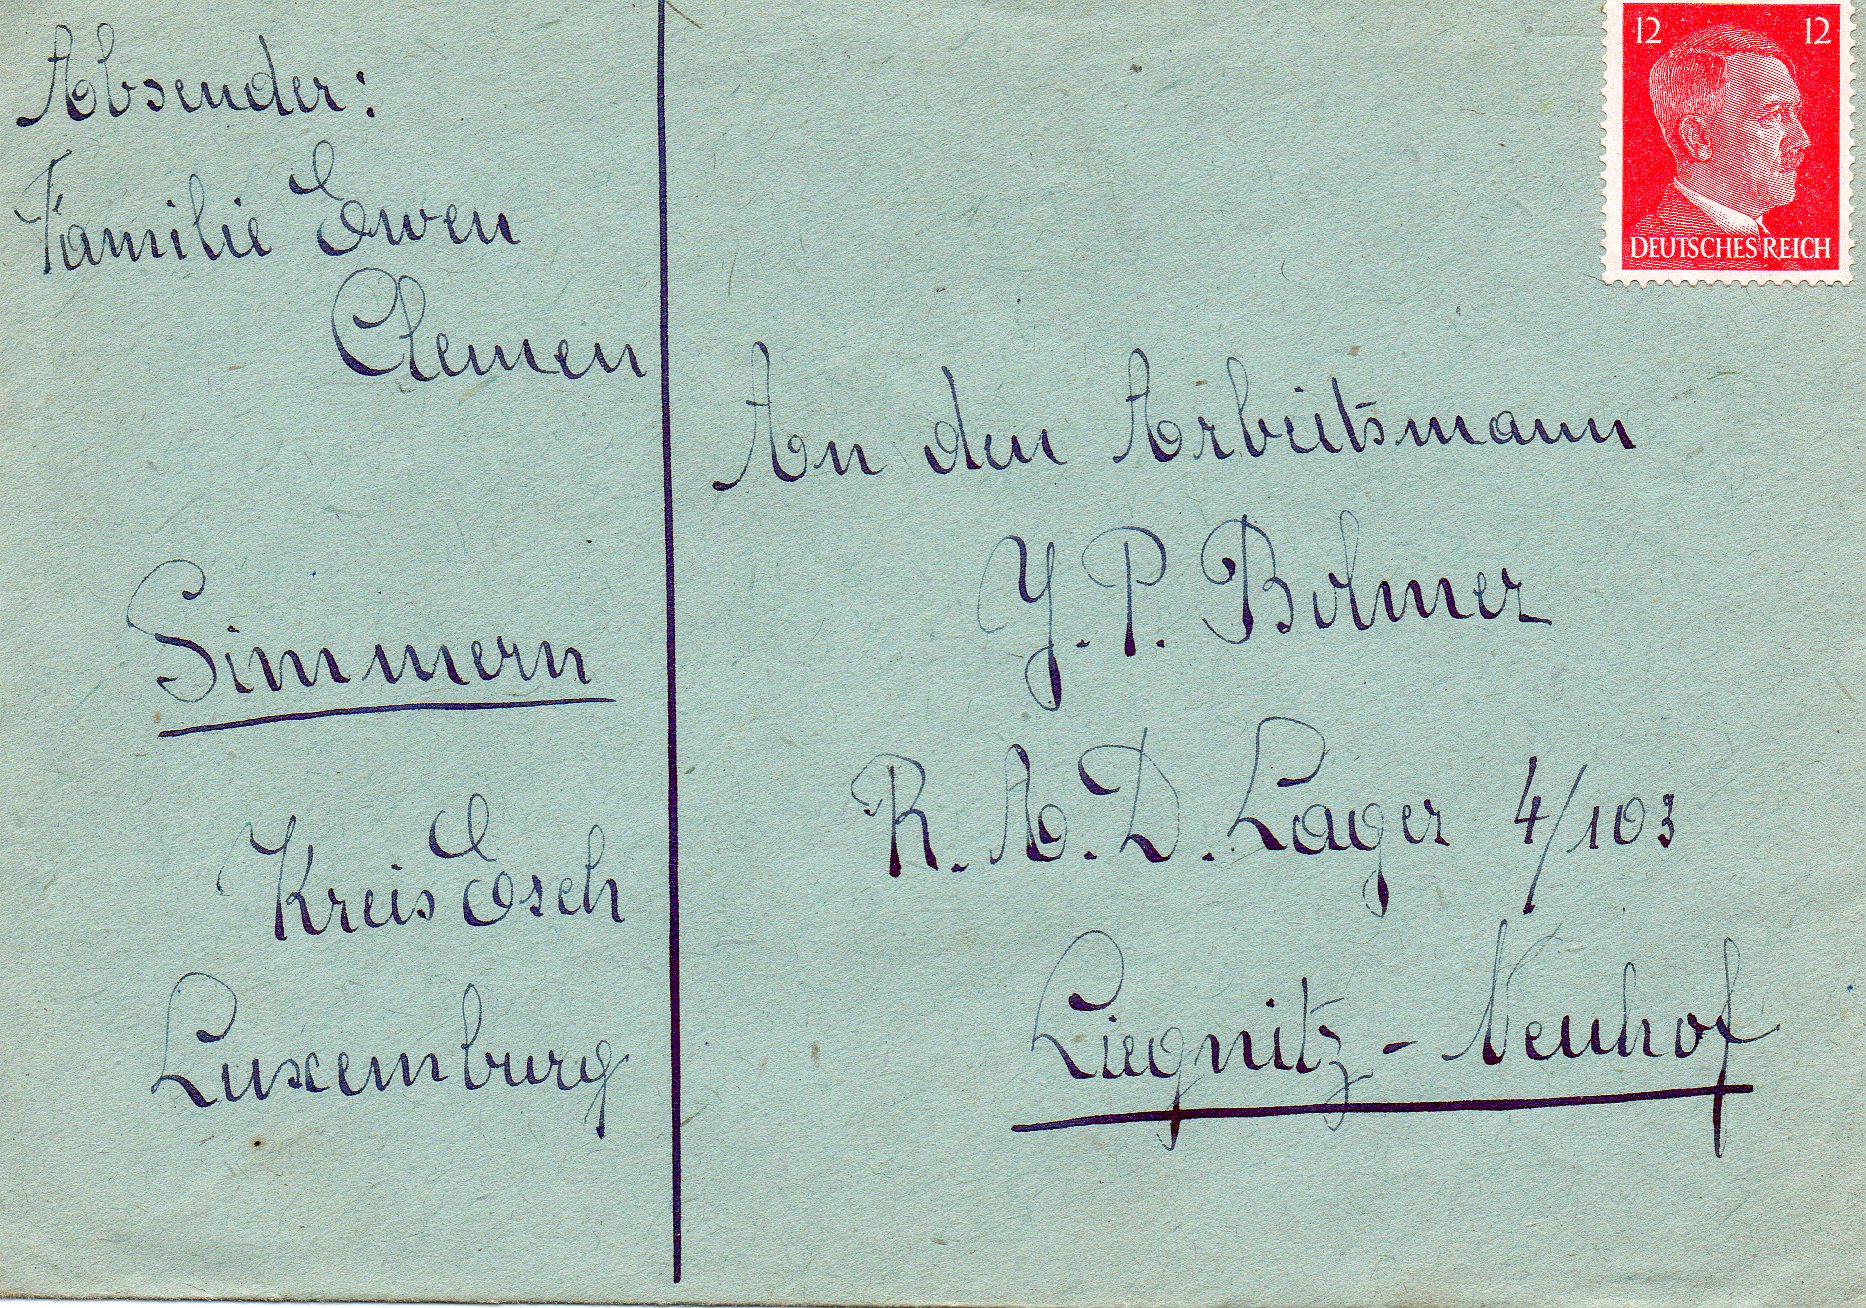 Absender:
Familie Ewen
Clemen
Simmern
Kreis Esch
Luxemburg
12 12
DEUTSCHES REICH
An den Arbeitsmann
J. P. Bolmer
R. A. D. Lager 4/103
Liegnitz - Neuhof